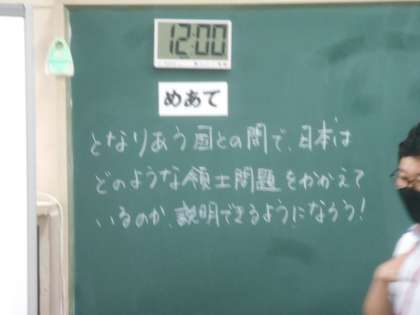 12:00
めあて
となりあう国との間で、日本は
どのような領土問題をかかえて
いるのか、説明できるようになろう!